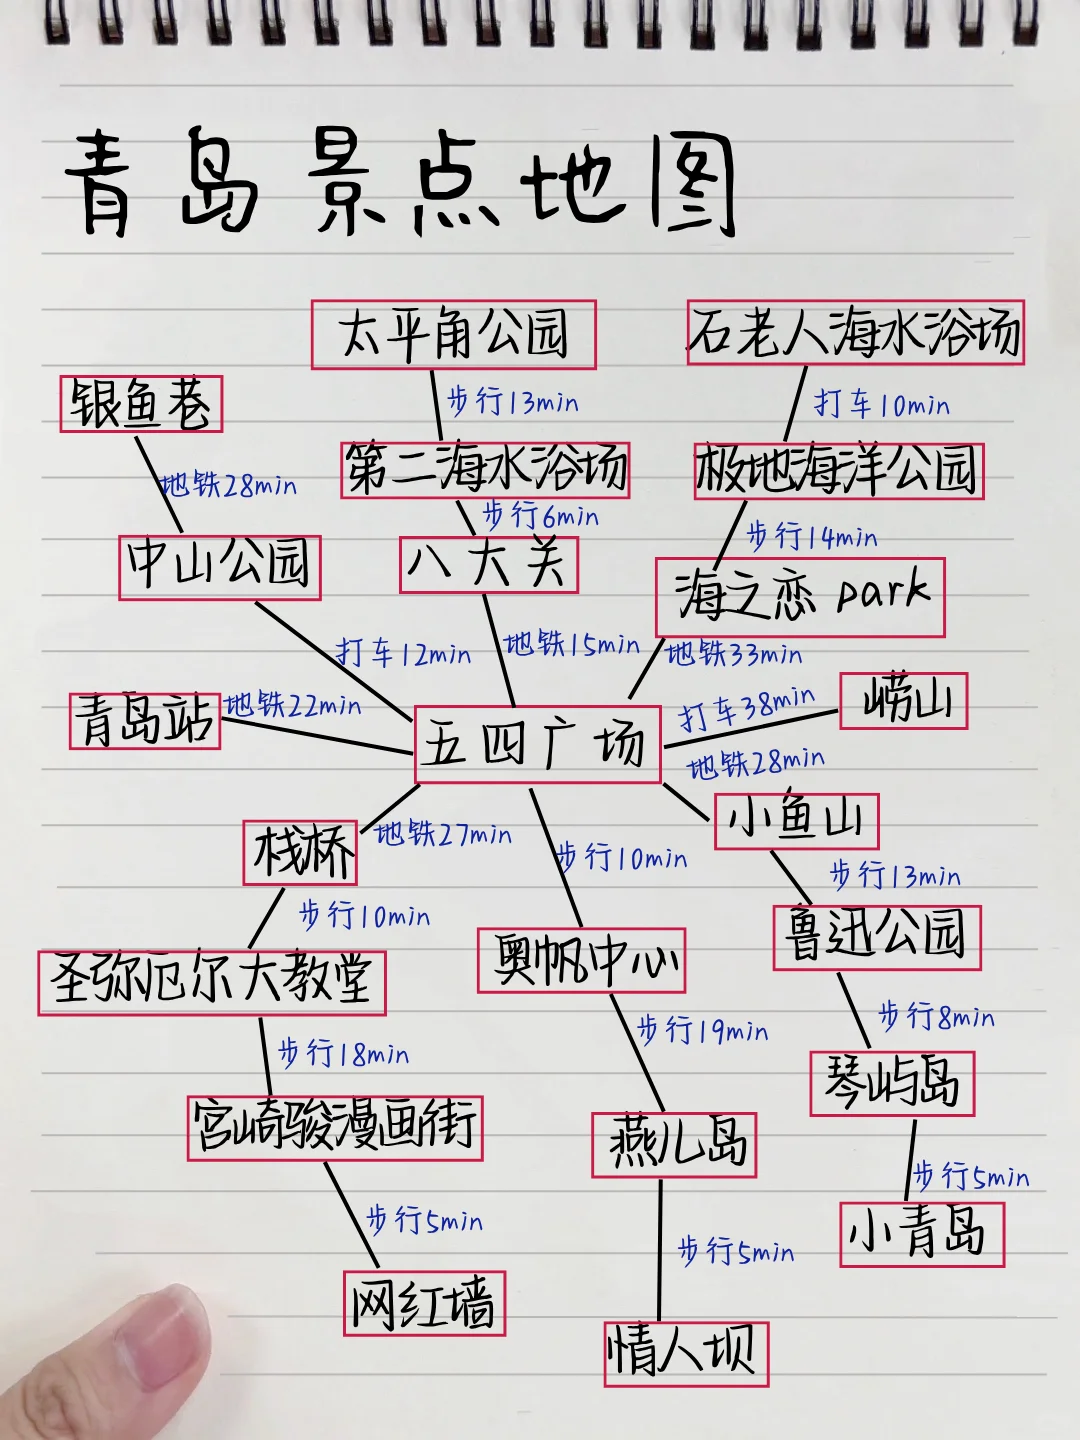 青岛景点地图
太平角公园
石老人海水浴场
银鱼巷
步行13min
打车10min
第二海水浴场
极地海洋公园
地铁28min
步行6min
步行14min
中山公园
八大关
海之恋 park
打车12min
地铁15min
地铁33min
青岛站
地铁22min
打车38min
崂山
五四广场
地铁28min
小鱼山
栈桥
地铁27min
步行10min
步行13min
步行10min
鲁迅公园
圣弥厄尔大教堂
奥帆中心
步行8min
步行18min
步行19min
琴屿岛
宫崎骏漫画街
燕儿岛
步行5min
步行5min
小青岛
步行5min
网红墙
情人坝